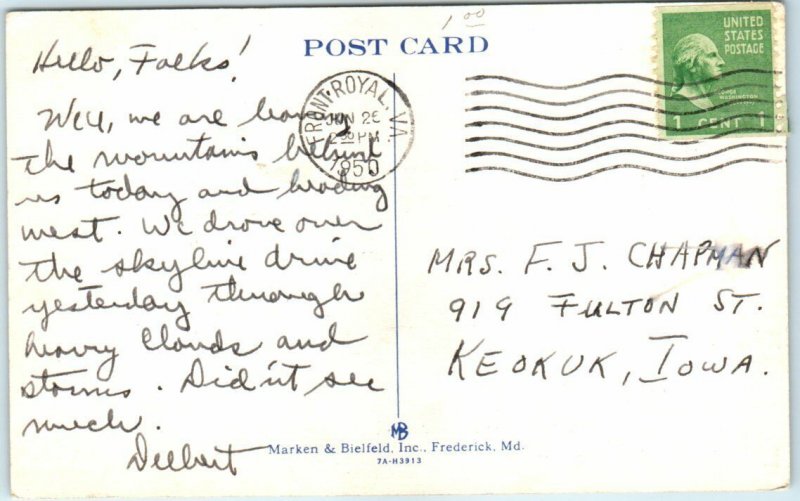 1.00
POST CARD
Hello, Folks!
Well, we are leaving
the mountains behind
us today and heading
west. We drove over
the skyline drive
yesterday through
heavy clouds and
storms. Didn't see
much.
Delbert
FRONT ROYAL, VA.
JUN 26
PM
1950
UNITED
STATES
POSTAGE
GEORGE
WASHINGTON
1 CENT 1
MRS. F. J. CHAPMAN
919 FULTON ST.
KEOKUK, IOWA.
MB
Marken & Bielfeld, Inc., Frederick, Md.
7A-H3913